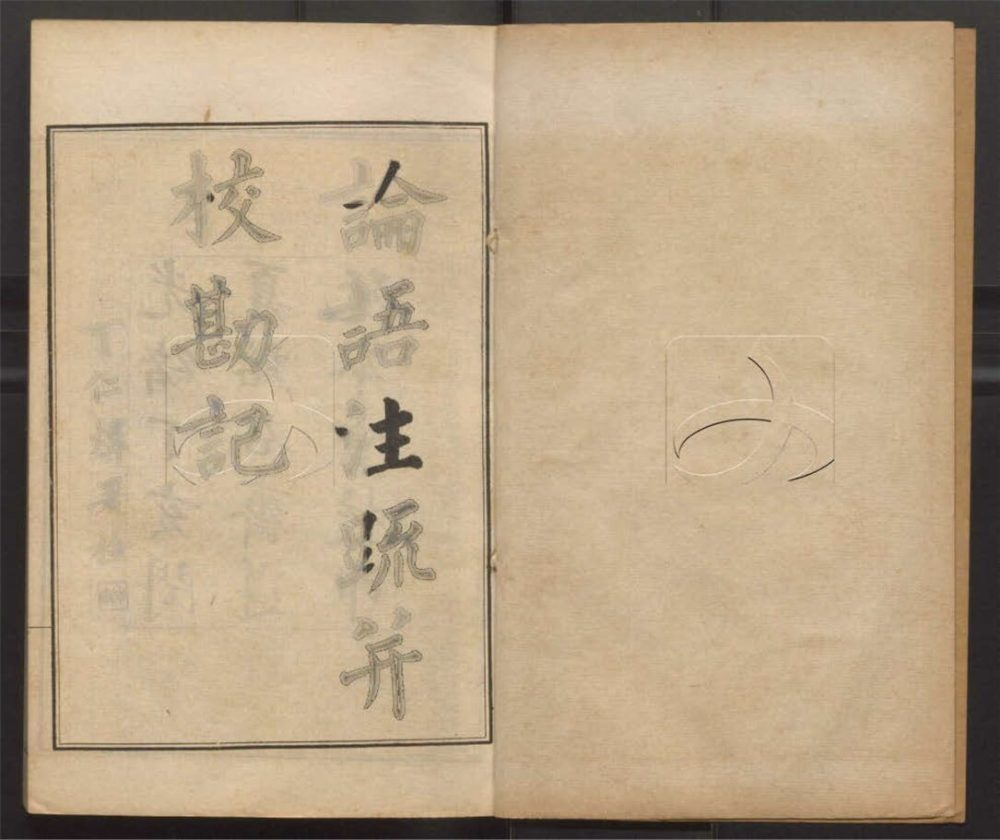 論語注疏并
校勘記